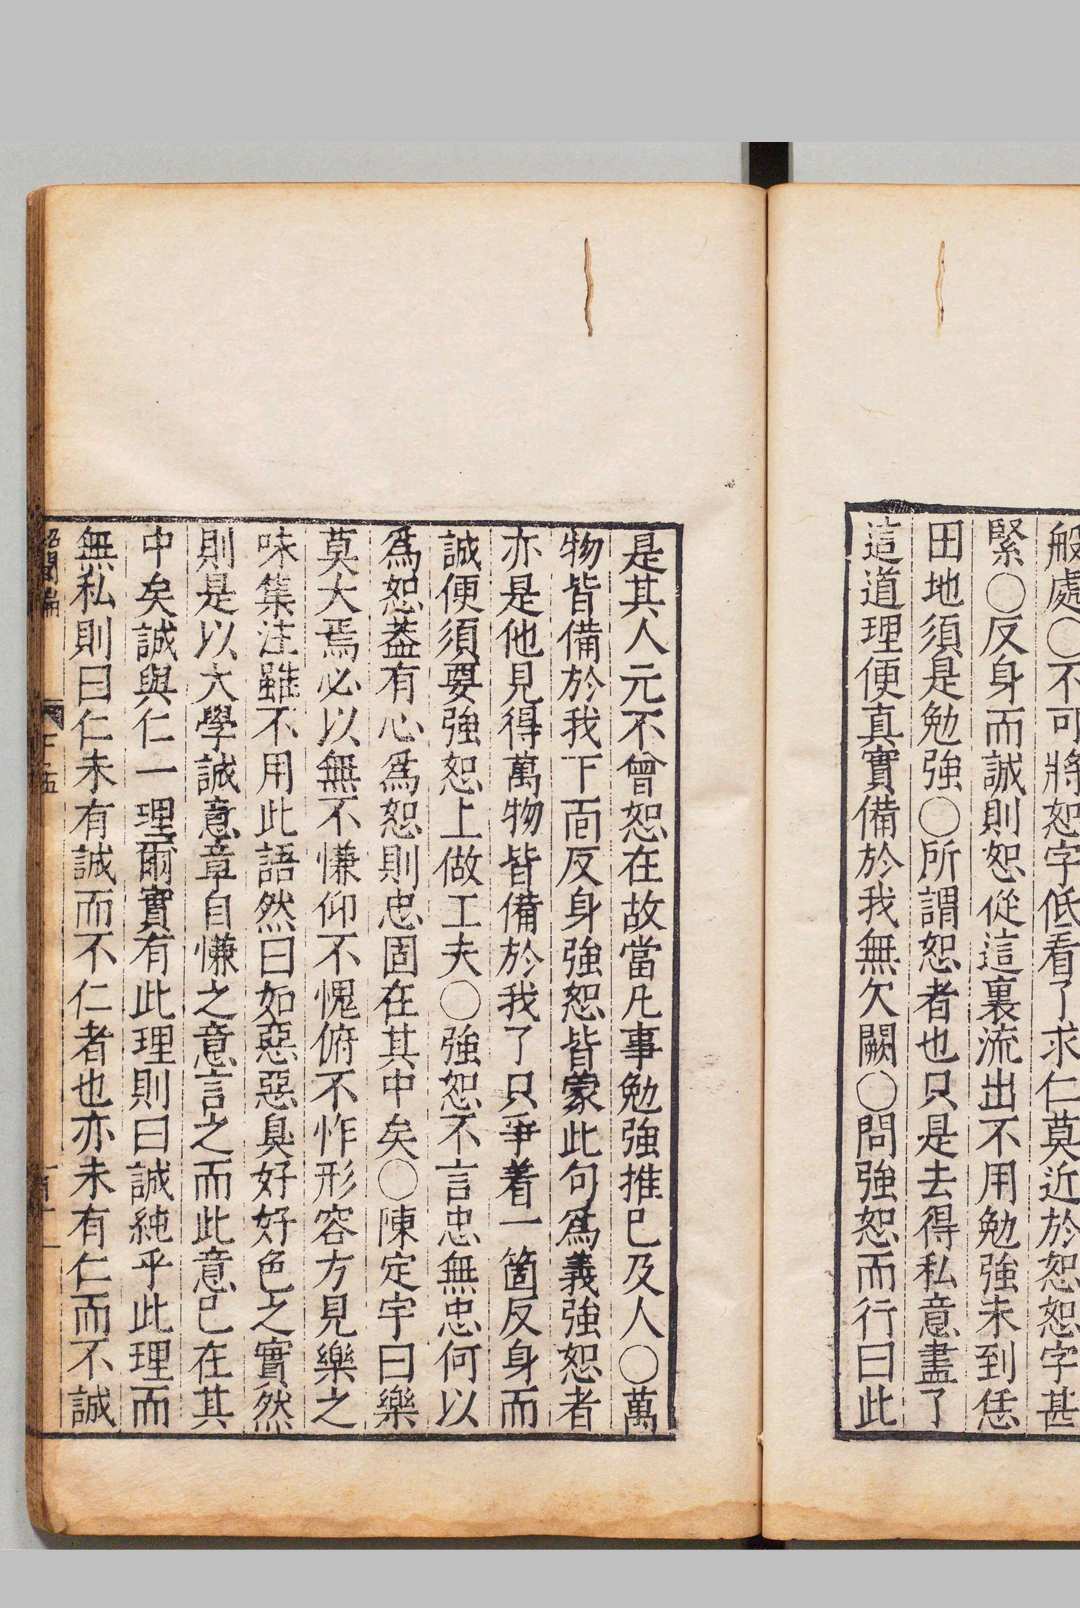 般處○不可將恕字低看了求仁莫近於恕恕字甚
緊○反身而誠則恕從這裏流出不用勉強未到恁
田地須是勉強○所謂恕者也只是去得私意盡了
這道理便真實備於我無欠闕○問強恕而行曰此
是其人元不曾恕在故當凡事勉強推已及人○萬
物皆備於我下面反身強恕皆蒙此句爲義強恕者
亦是他見得萬物皆備於我了只爭着一箇反身而
誠便須要強恕上做工夫○強恕不言忠無忠何以
爲恕葢有心爲恕則忠固在其中矣○陳定宇曰樂
莫大焉必以無不慊仰不愧俯不怍形容方見樂之
味集注雖不用此語然曰如惡惡臭好好色之實然
則是以大學誠意章自慊之意言之而此意已在其
中矣誠與仁一理爾實有此理則曰誠純乎此理而
無私則曰仁未有誠而不仁者也亦未有仁而不誠